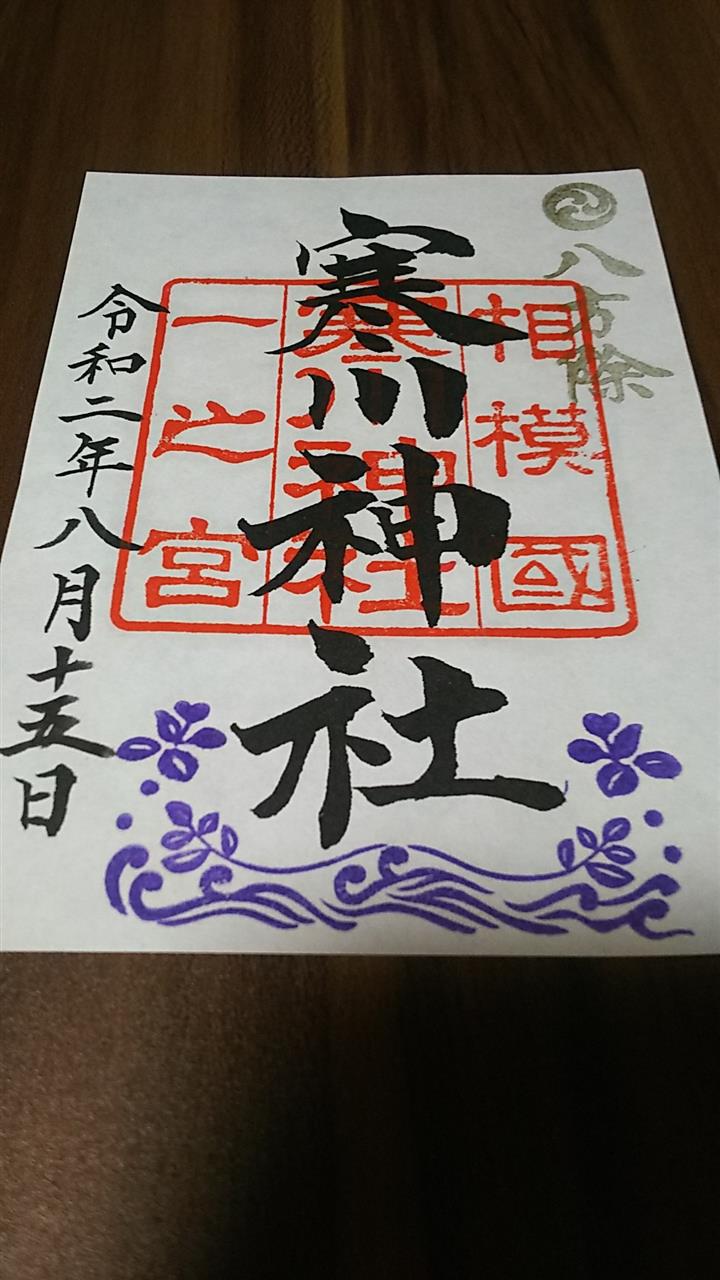 八方除
相模國
寒川神社
一之宮
寒川神社
令和二年八月十五日